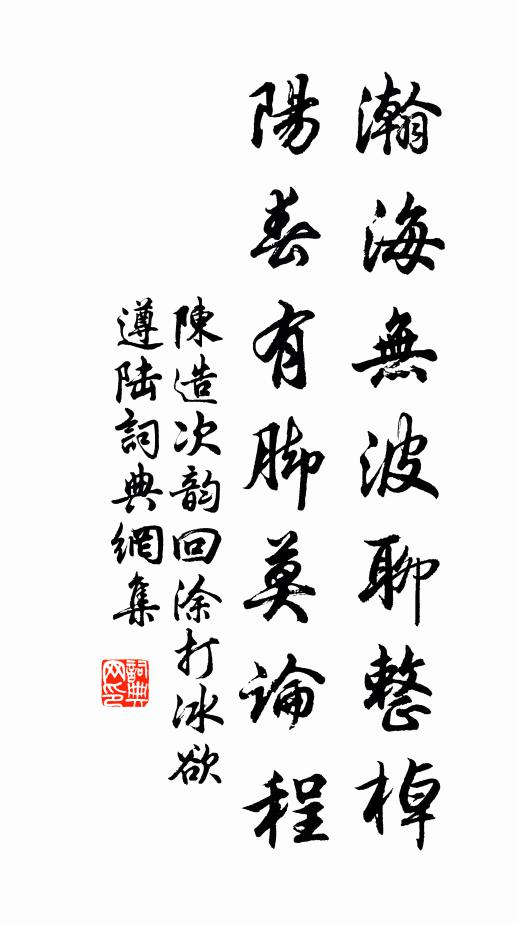 瀚海無波聊整棹
陽春有脚莫論程
陳造次韵回涂打冰欲
遵陸詞典網集
詞典網印